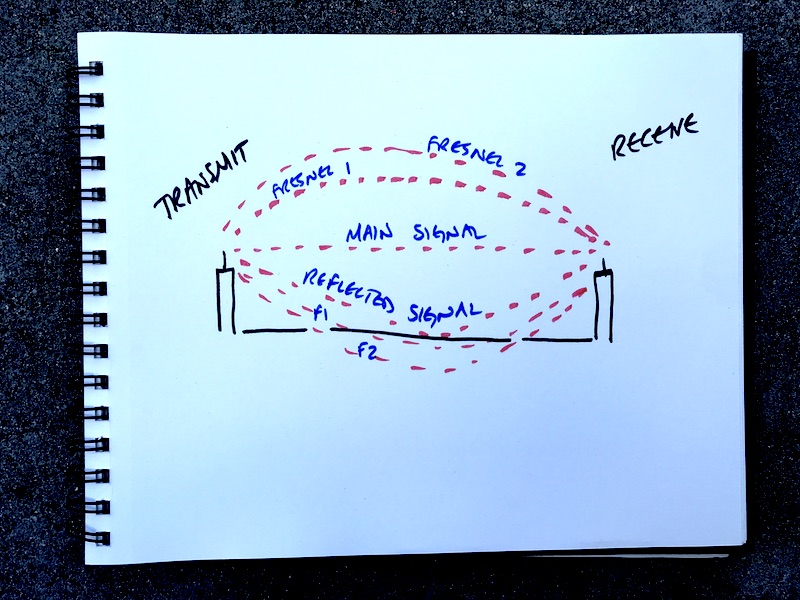 TRANSMIT
RECEIVE
FRESNEL 2
FRESNEL 1
MAIN SIGNAL
REFLECTED SIGNAL
F1
F2